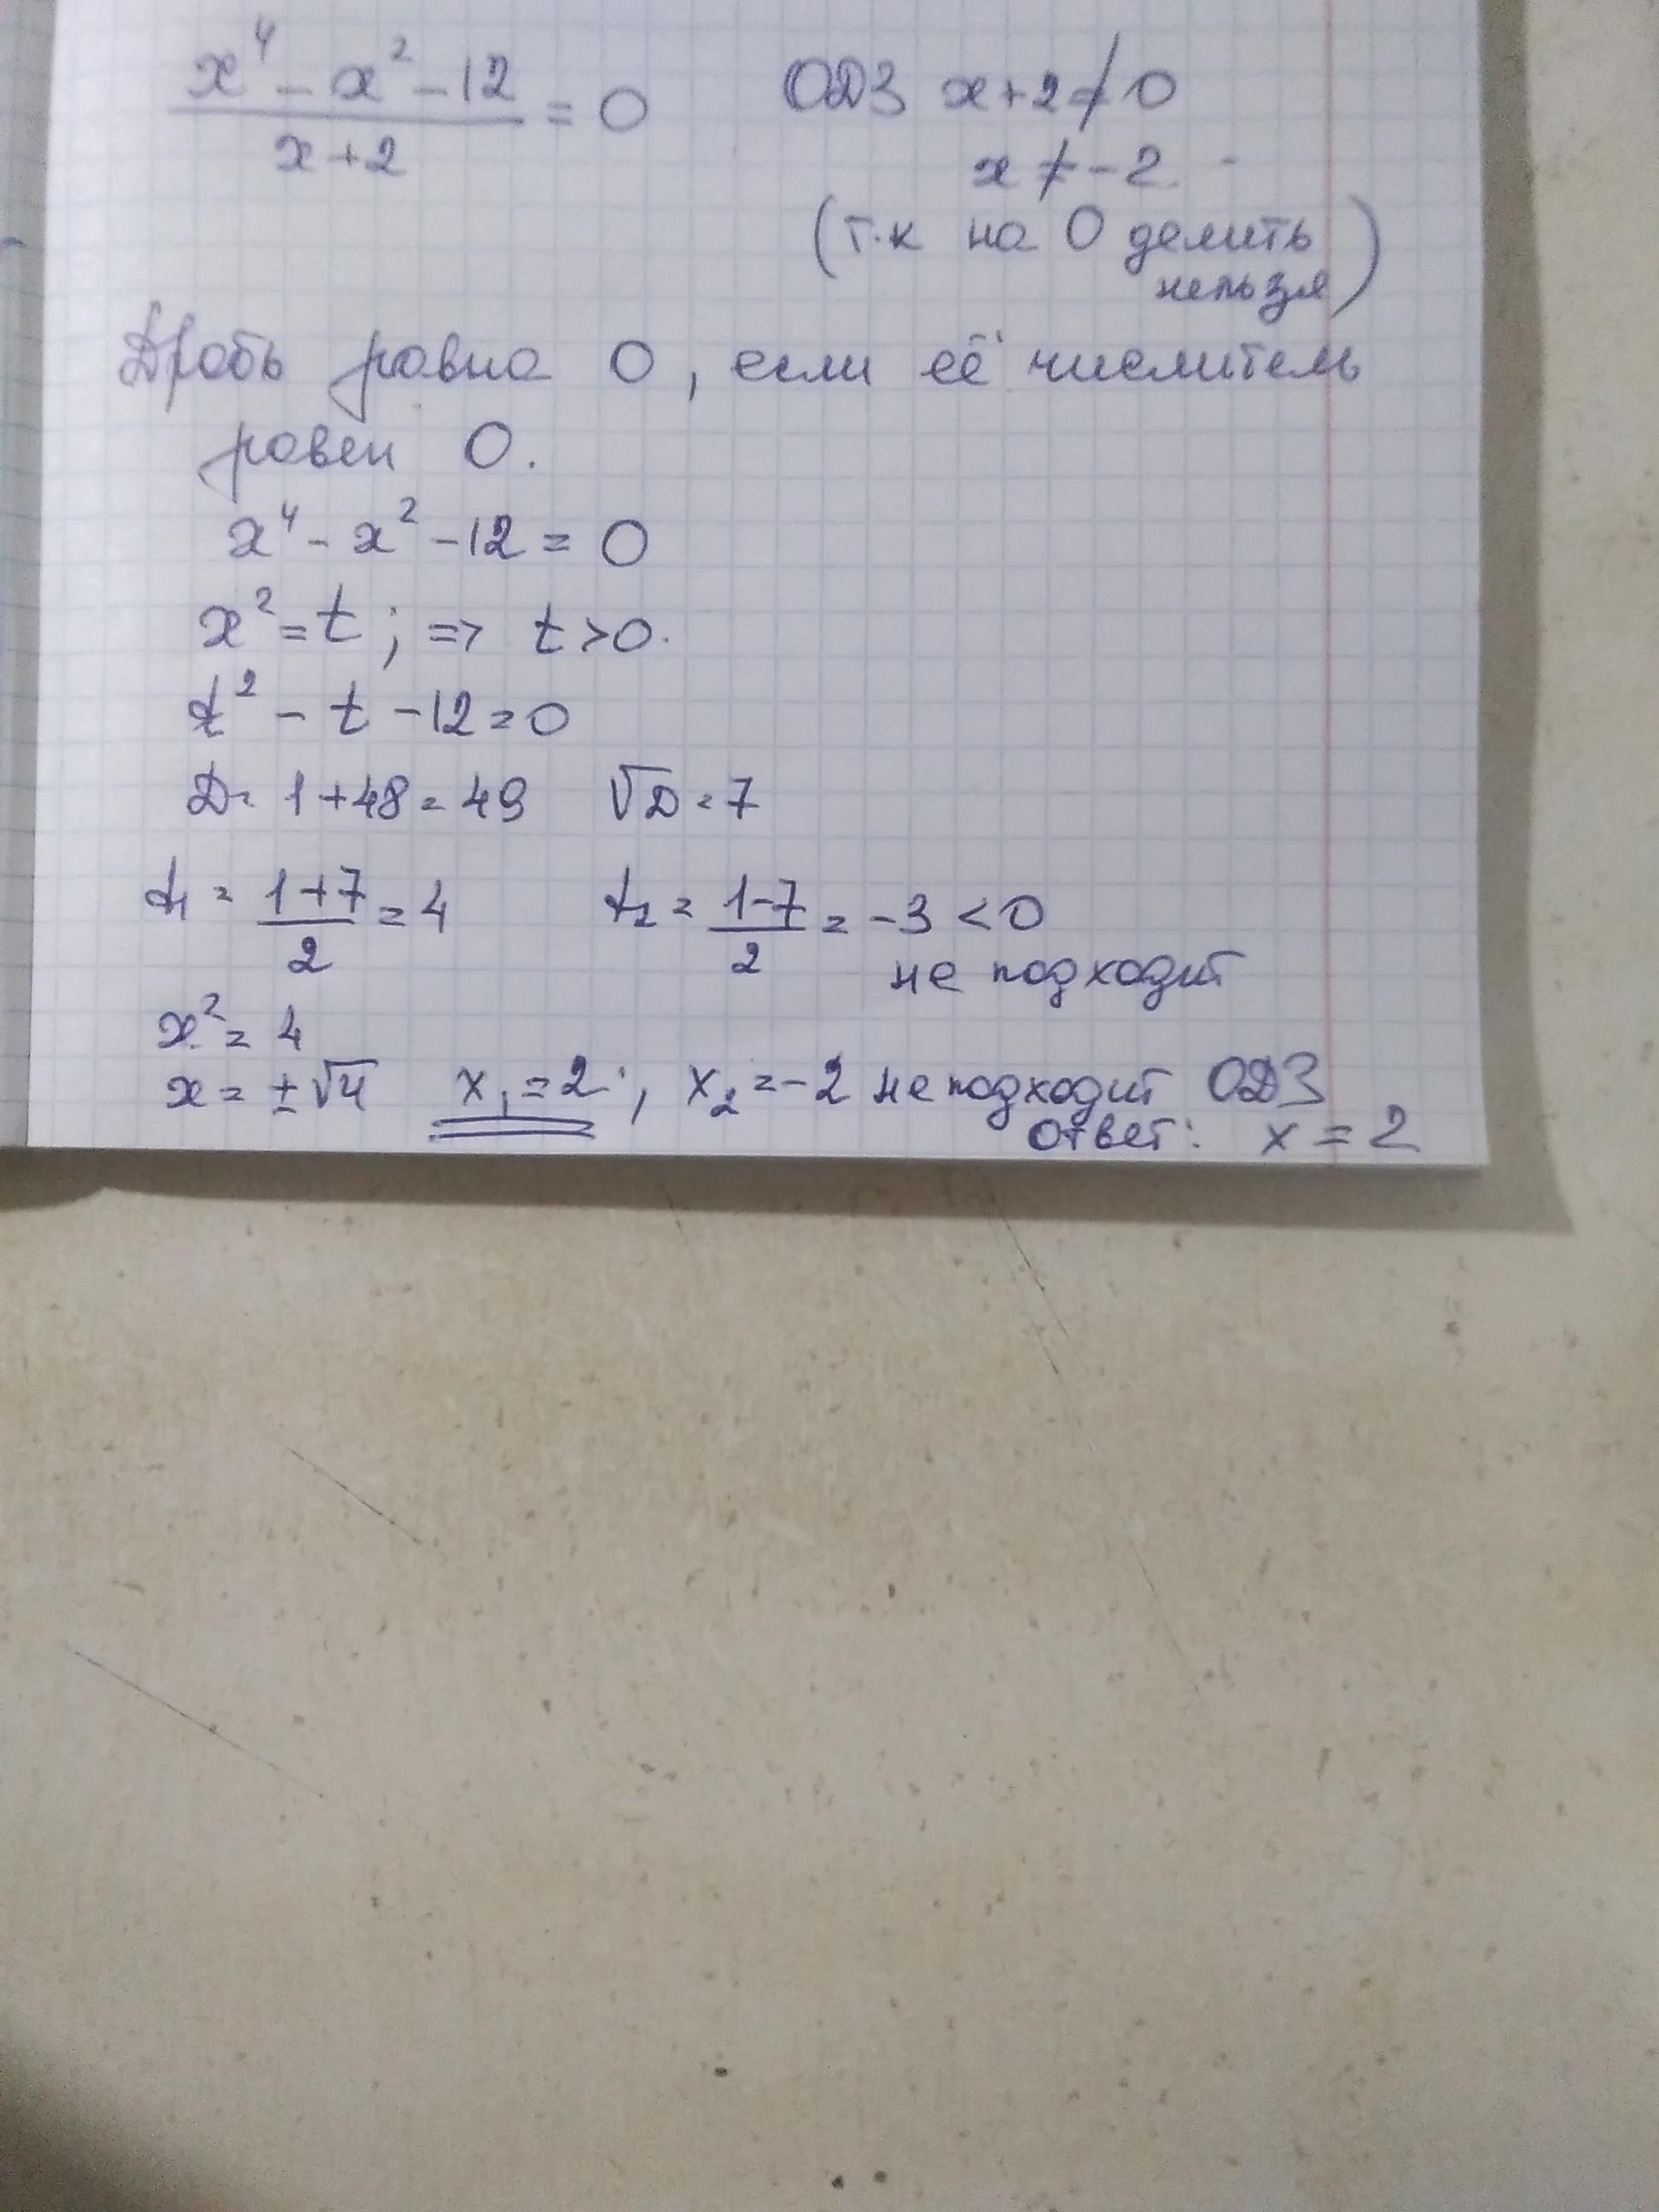 x⁴ - x² - 12 / x + 2 = 0 ОДЗ x + 2 ≠ 0
x ≠ -2
(т.к на 0 делить
нельзя)
Дробь равна 0, если её числитель
равен 0.
x⁴ - x² - 12 = 0
x² = t ; => t > 0.
t² - t - 12 = 0
D = 1 + 48 = 49 √D = 7
t₁ = (1 + 7)/2 = 4 t₂ = (1 - 7)/2 = -3 < 0
не подходит
x² = 4
x = ±√4 x₁ = 2 ; x₂ = -2 не подходит ОДЗ
Ответ: x = 2